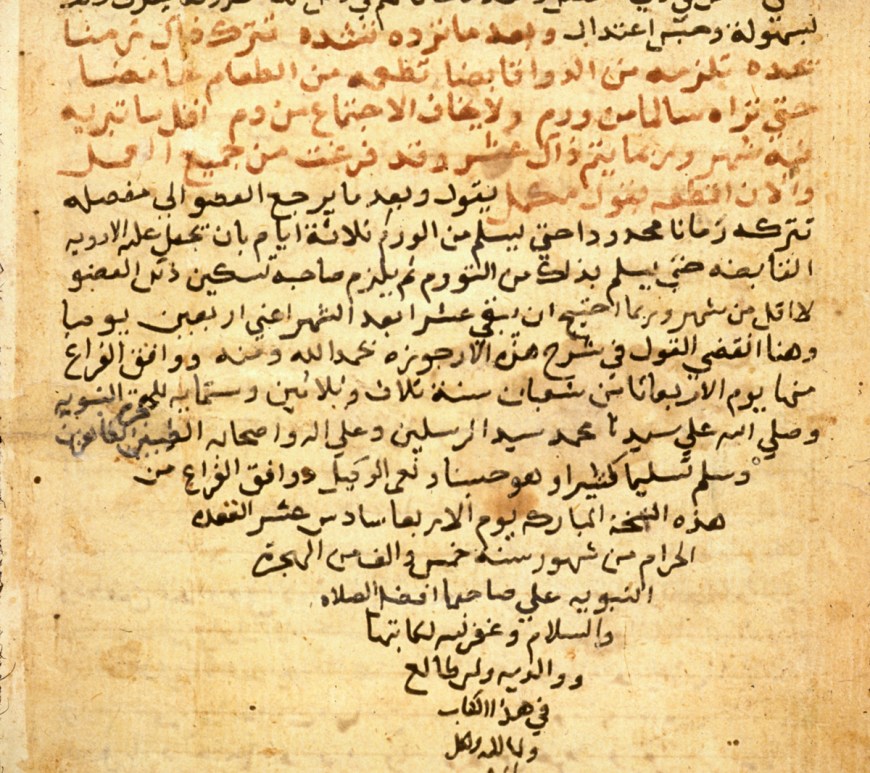 لسهولة وحبس اعتدال وبعد ما نرده نشده نتركه زمنا
بعده تلزمه من الدوا قابضا تطعمه من الطعام غامضا
حتى نراه سالما من ورم ولا يخاف الاجتماع من دم اقل ما تبريه
فيه شهر وربما يتم ذاك عشر وقد فرغت من جميع العمل
والان اقطعه بقول مكمل يقول وبعد ما يرجع العضو الى مفصله
تتركه زمانا محدودا حتى يسلم من الورم ثلاثة ايام بان تجعل عليه الادويه
القابضه حتى يسلم بذلك من التورم ثم يلزم صاحبه تسكين ذلك العضو
لا اقل من شهر وربما احتيج ان يبقي عشرا بعد الشهر اعني اربعين يوما
وهنا انقضي القول في شرح هذه الارجوزه بحمد الله ومنه ووافق الفراغ
منها يوم الاربعا من شعبان سنة ثلاث وثلاثين وستمايه للهجرة النبويه
وصلي الله علي سيدنا محمد سيد المرسلين وعلي اله واصحابه الطيبين
وسلم تسليما كثيرا وهو حسبنا ونعم الوكيل ووافق الفراغ من
هذه النسخة المباركه يوم الاربعا سادس عشر القعده
الحرام من شهور سنة خمس والف من الهجرة
النبويه علي صاحبها افضل الصلاه
والسلام وغفر لكاتبها
ووالديه ولمن طالع
في هذا الكتاب
ولكل